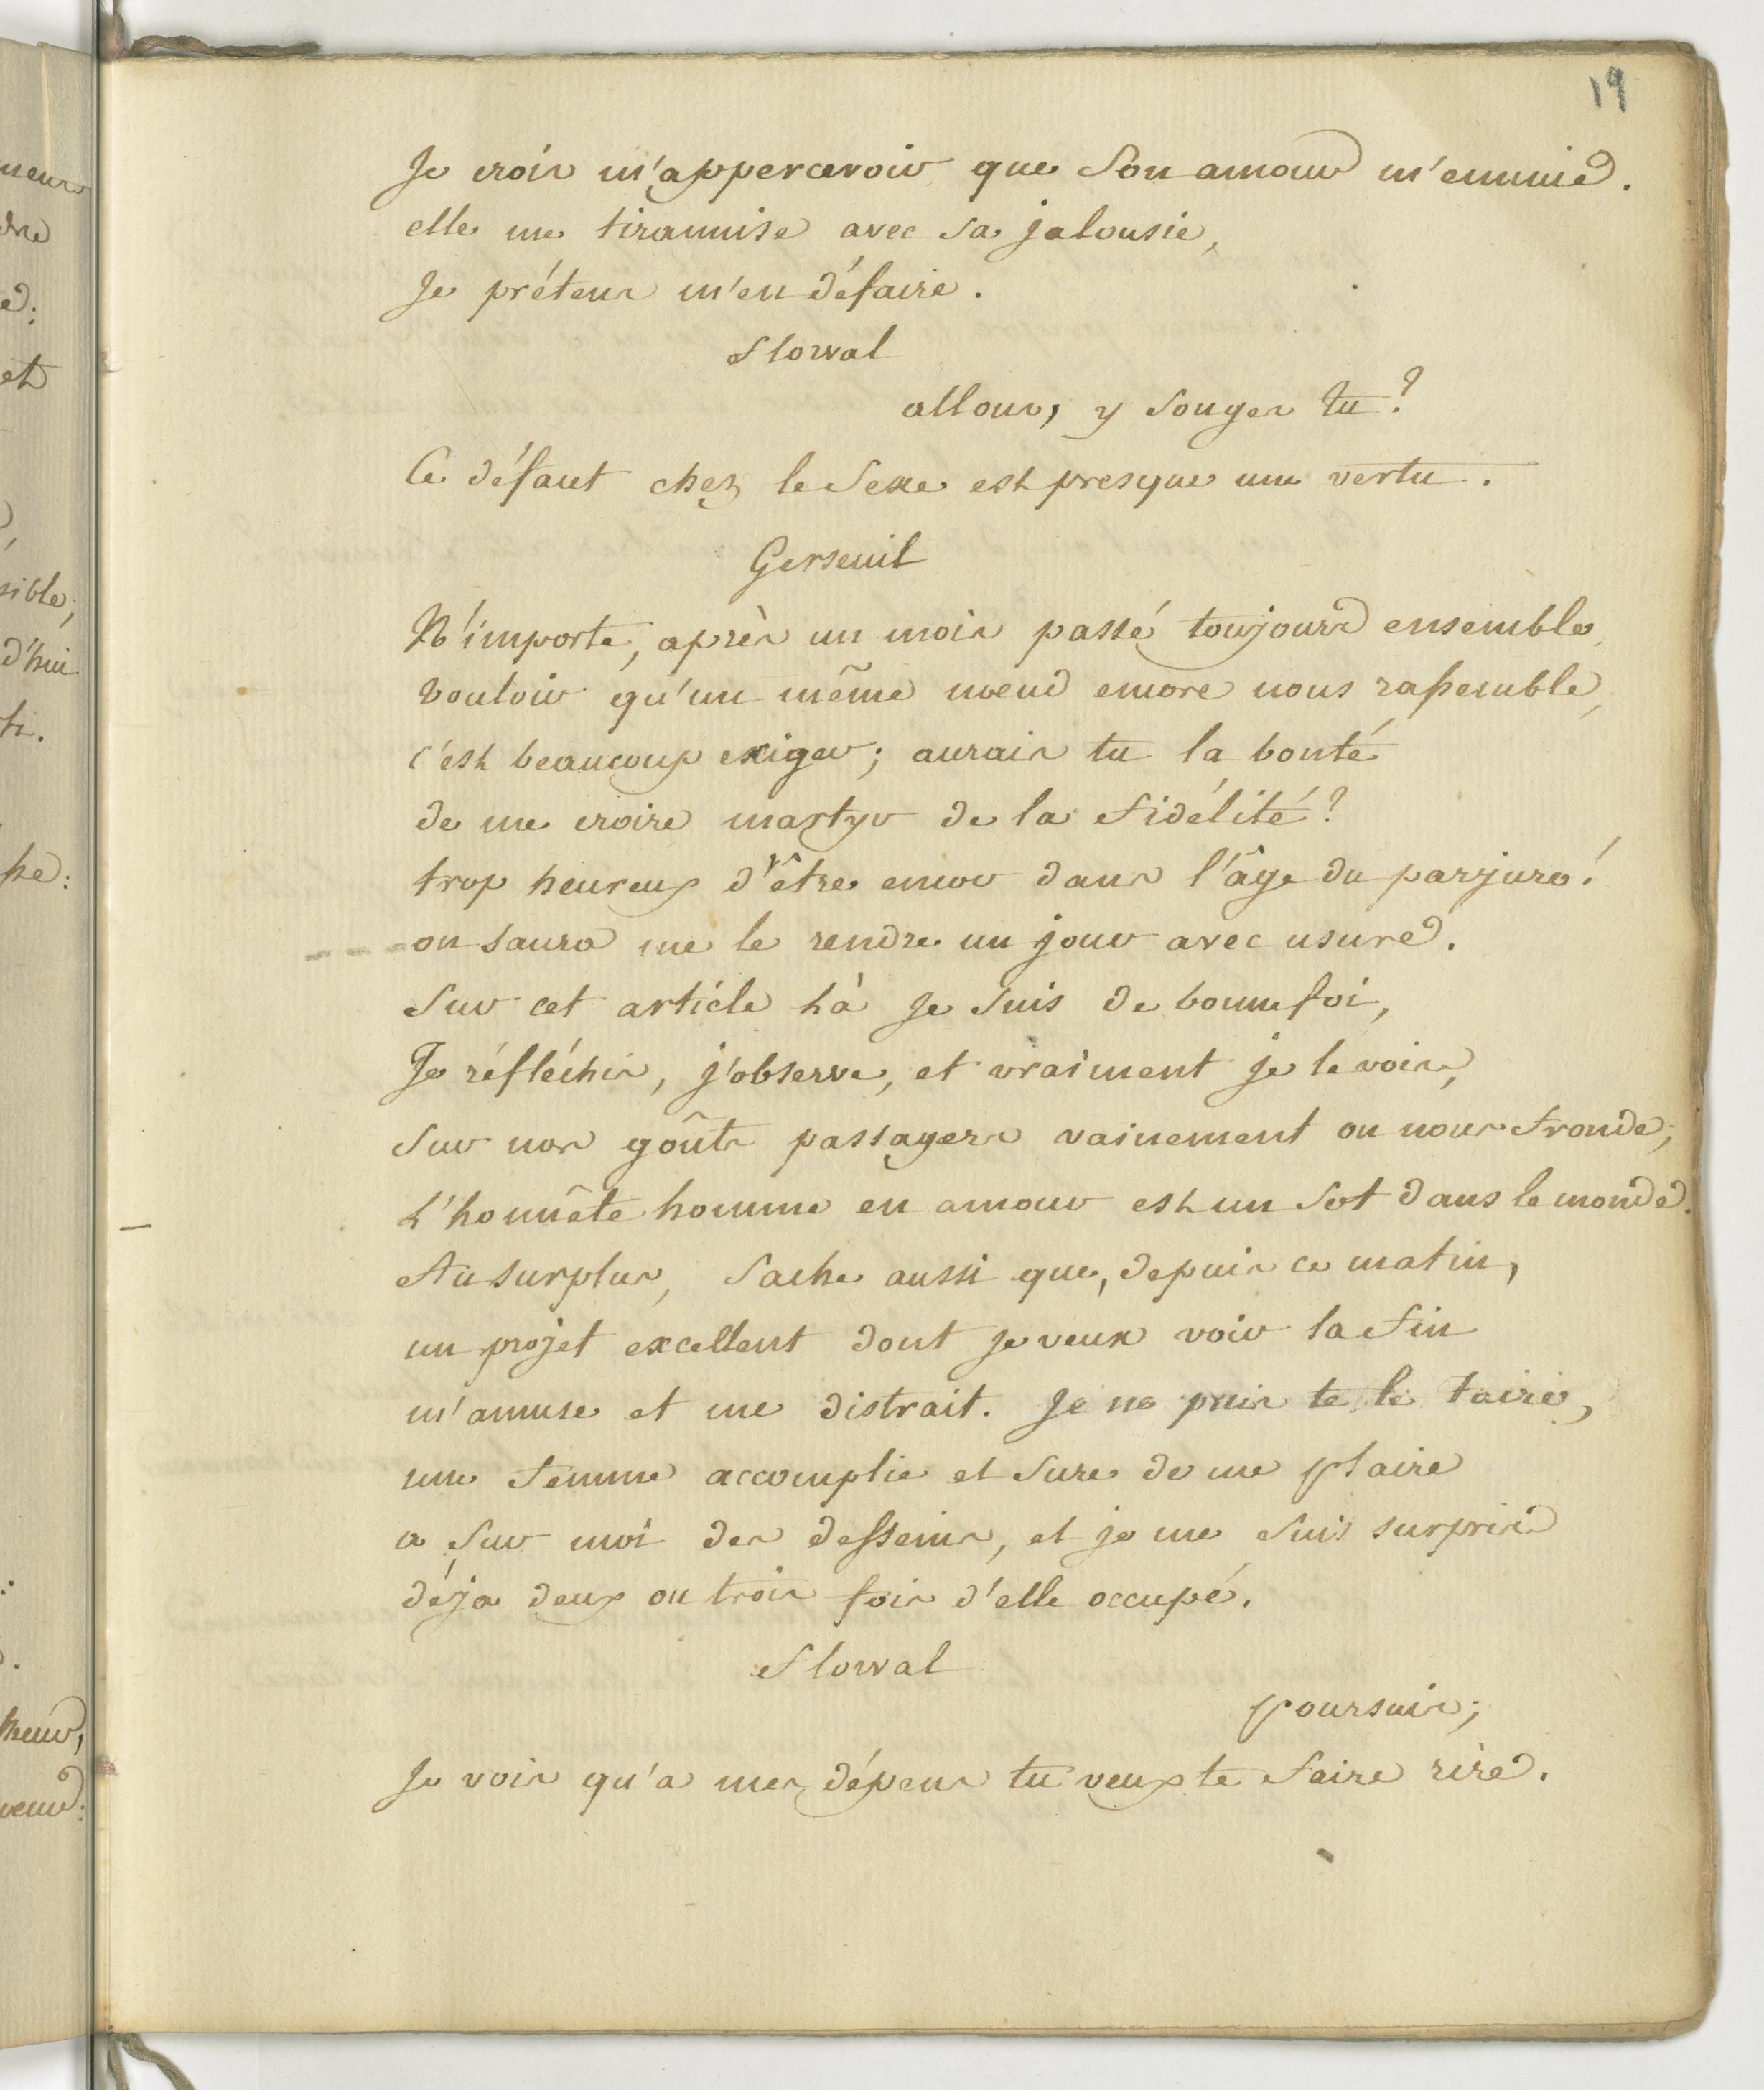 19
Je crois m'appercevoir que Son amour m'ennuie.
elle me tirannise avec sa jalousie,
Je prétens m'en défaire.
Florval
allons, y songes tu?
Ce défaut chez le Sexe est presque une vertu.
Gerseuil
N'importe, après un mois passé toujours ensemble,
Vouloir qu'un même nœud encore nous rassemble,
c'est beaucoup exiger; aurais tu la bonté
de me croire martyr de la fidélité?
trop heureux d'être encor dans l'âge du parjure!
on saura me le rendre un jour avec usure.
Sur cet article là Je suis de bonne foi,
Je réfléchis, j'observe, et vraiment je le vois,
Sur nos goûts passagers vainement on nous fronde;
L'honnête homme en amour est un Sot dans le monde.
Au surplus, Sache aussi que, depuis ce matin,
un projet excellent dont Je veux voir la fin
m'amuse et me distrait. Je ne puis te le taire,
une femme accomplie et Sure de me plaire
a Sur moi des desseins, et je me suis surpris
déja deux ou trois fois d'elle occupé.
Florval
poursuis;
Je vois qu'a mes dépens tu veux te faire rire.
neur
dre
et
sible,
d'hui